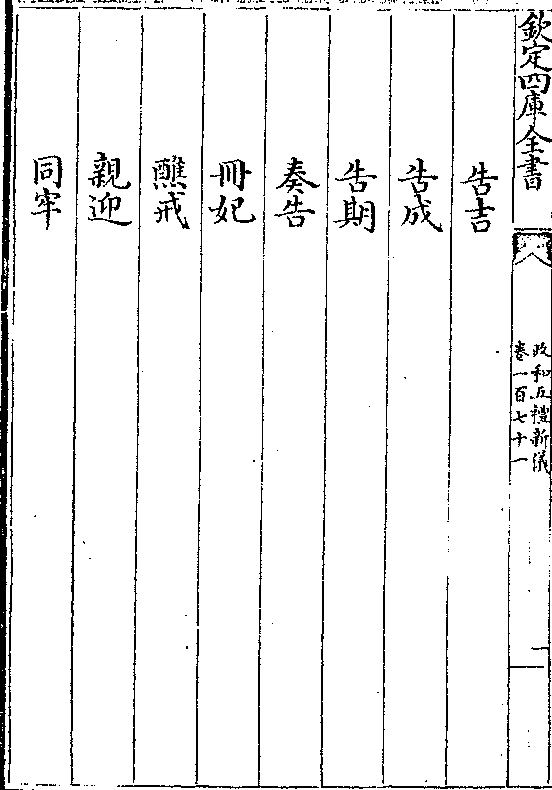 欽定四庫全書
政和五禮新儀
卷一百七十一
一
告吉
告成
告期
奏告
冊妃
醮戒
親迎
同牢